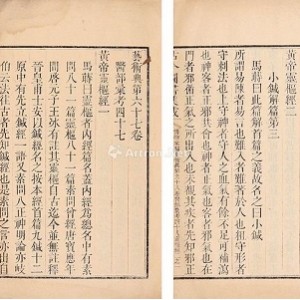 黃帝靈樞經二
小鍼解篇第三
馬蒔曰此篇首篇之義故名之曰小鍼
所謂易陳者易言也難入者難著於人也粗守形者
守刺法也上守神者守人之血氣有餘不足可補瀉
也神客者正邪共會也神者正氣也客者邪氣也在
門者邪循正氣之所出入也未覩其疾者先知邪正
藝術典第六十七卷
醫部彙考四十七
黃帝靈樞經一
馬蒔曰靈樞者內經篇名蓋內經為總名中有素
問八十一篇靈樞八十一篇又素問曾經唐寶應年
間啓元子王冰有註其靈樞自古迄今並無註釋
晉皇甫士安以鍼經名之按本經首篇九鍼十二
原中有先立鍼經一語又素問八正神明論亦岐
伯云法往古者先知鍼經也是素問之言亦出自